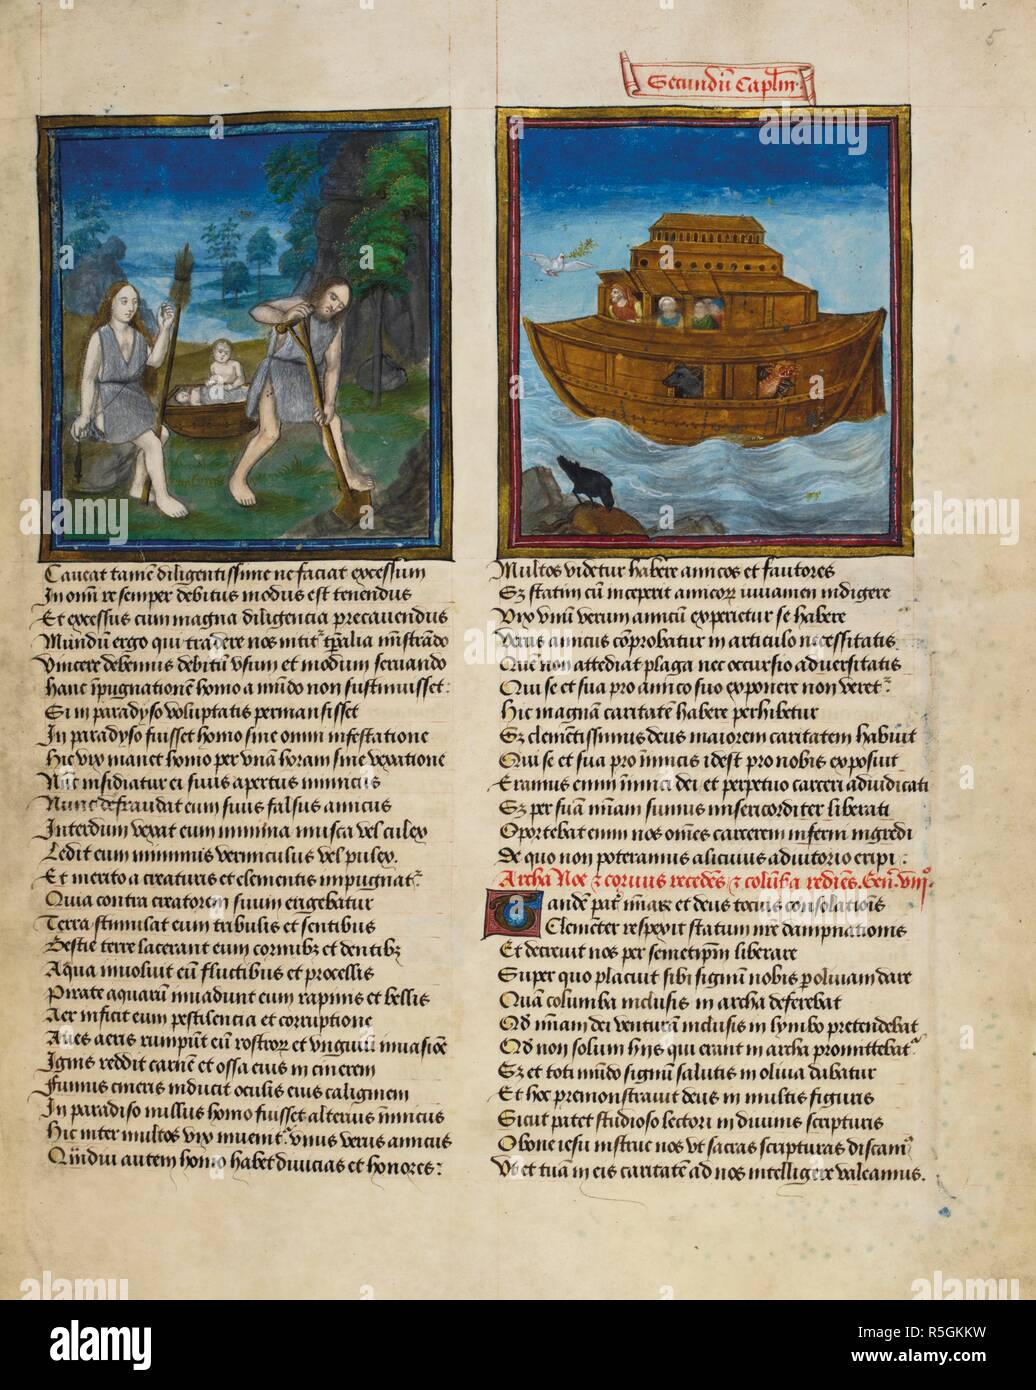 5
Secundũ Capłm
Caueat tamẽ diligentissime ne faciat excessum
In omi re semper debitus modus est tenendus
Et excessus cum magna diligencia precauendus
Mũndũm ergo qui tradere nos intit᷑ tp̃alia mĩstrãdo
Vincere debemus debitũ vsum et modum seruando
Hanc ĩpugnationẽ homo a mũdo non sustinuisset:
Si in paradyso voluptatis permansisset
In paradyso fuisset homo sine omni infestatione
Hic vix manet homo per vnã horam sine vexatione
Nũc insidiatur ei suus apertus inimicus
Nunc defraudat eum suus falsus amicus
Interdum vexat eum minima musca vel culex
Ledit eum minimus vermiculus vel pulex.
Et merito a creaturis et elementis impugnat᷑
Quia contra creatorem suum erigebatur
Terra stimulat eum tribulis et sentibus
Bestie terre lacerant eum cornibꝫ et dentibꝫ
Aqua inuoluit eũ fluctibus et procellis
Pirate aquarũ inuadunt eum rapinis et bellis
Aer inficit eum pestilencia et corruptione
Aues aeris rumpũt eũ rostroꝝ et vnguiũ inuasiõe
Ignis reddit carnẽ et ossa eius in cinerem
Fumus cineris inducit oculis eius caliginem
In paradiso nullus homo fuisset alterius inimicus
Hic inter multos vix inuenit᷑ vnus verus amicus
Qũidiu autem homo habet diuicias et honores:
Multos videtur habere amicos et fautores
Sꝫ statim cũ inceperit amicoꝝ iuuamen indigere
Vix vnũ verum amicũ experietur se habere
Verus amicus cõprobatur in articulo necessitatis
Quẽ non attediat plaga nec occursio aduersitatis
Qui se et sua pro amico suo exponere non veret᷑
Hic magnã caritatẽ habere perhibetur
Sꝫ clemẽtissimus deus maiorem caritatem habuit
Qui se et sua pro inimicis idest pro nobis exposuit
Eramus enim inimici dei et perpetuo carceri adiudicati
Sꝫ per suã mĩam sumus misericorditer liberati
Oportebat enim nos om̃es carcerem inferni ingredi
De quo non poteramus alicuius adiutorio eripi:
Archa Noe ⁊ coruus recedẽs ⁊ colũba rediens. Geñ. viij°.
Tandẽ pat᷑ mĩaꝝ et deus tocius consolationis
Clemẽter respexit statum nr̃e dampnationis
Et decreuit nos per semetip̃m liberare
Super quo placuit sibi signũ nobis ꝑ oliuam dare
Quã columba inclusis in archa deferebat
Qd̃ mĩam dei venturã inclusis in lymbo pretendebat
Qd̃ non solum hijs qui erant in archa promittebat᷑
Sꝫ et toti mũdo signũ salutis in oliua dabatur
Et hoc premonstrauit deus in multis figuris
Sicut patet studioso lectori in diuinis scripturis
O bone iesu instrue nos vt sacras scripturas discam᷒
Vt et tuã in eis caritatẽ ad nos intelligere valeamus.
alamy
R5GKKW
www.alamy.com